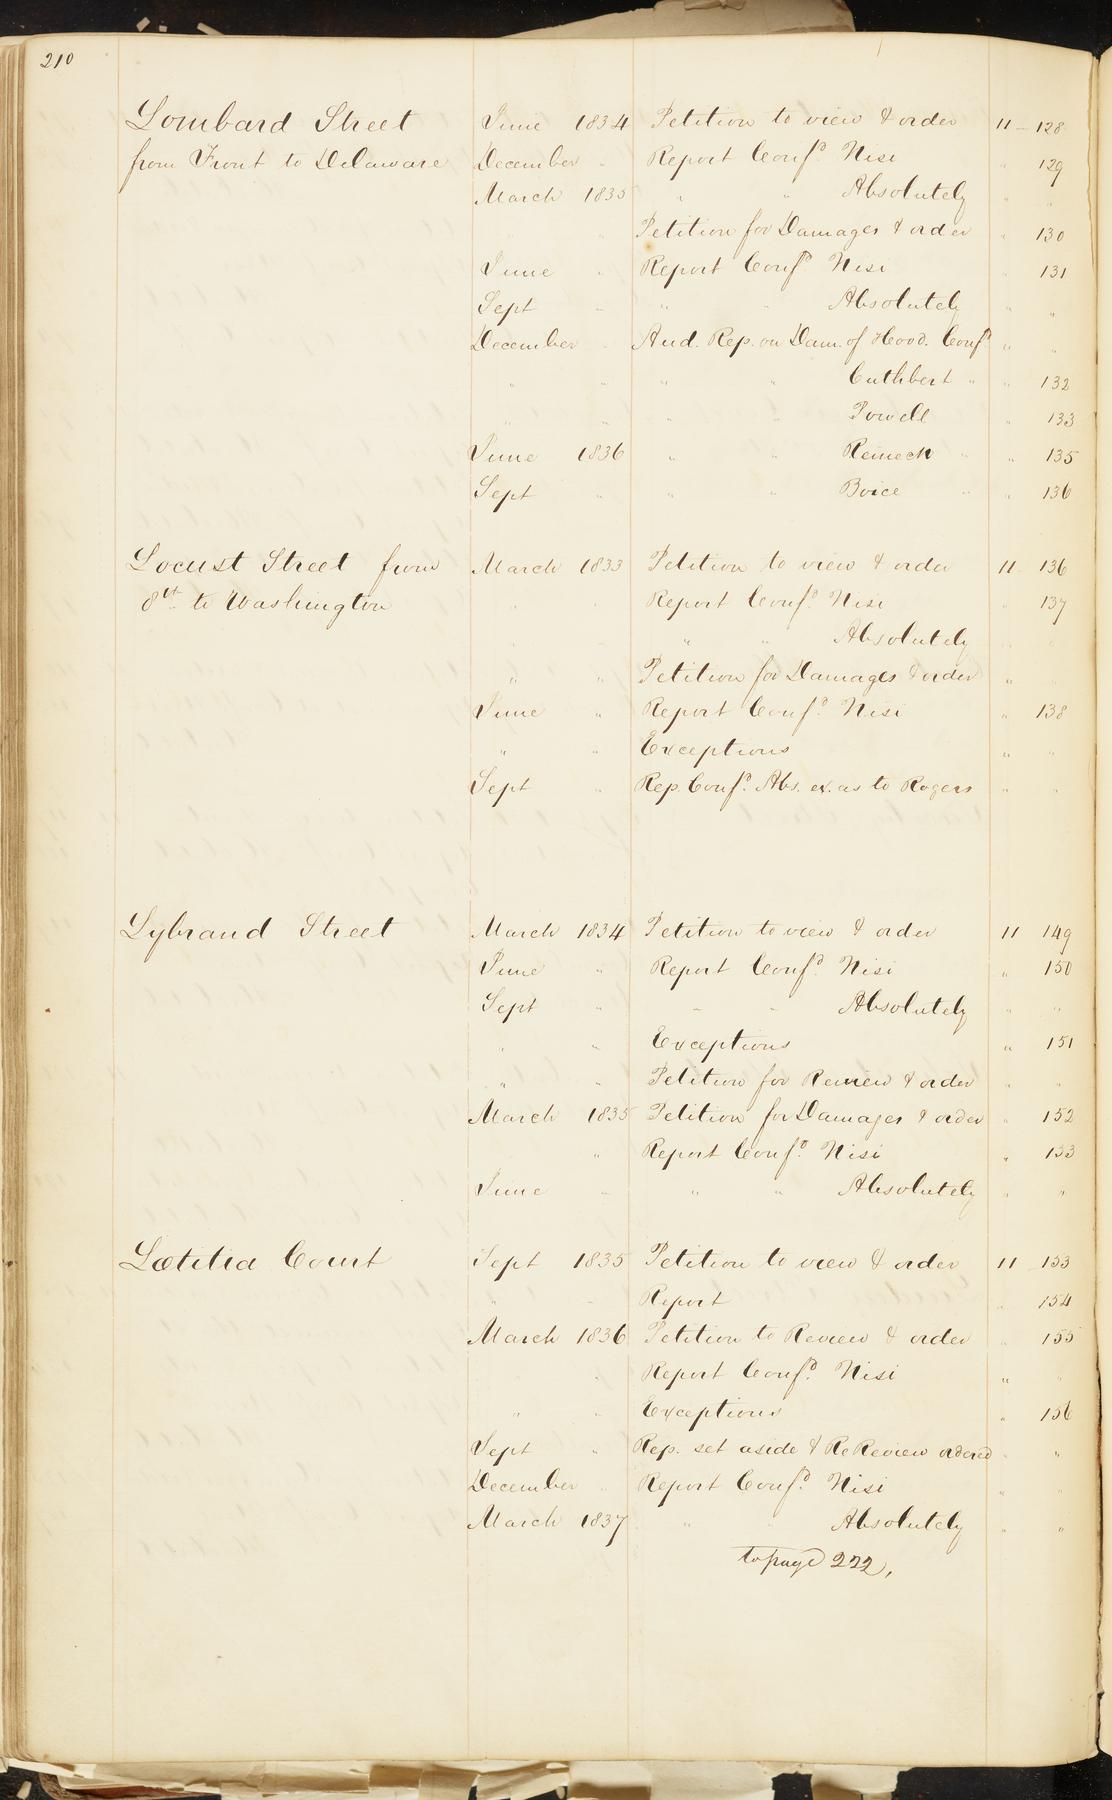 210
Lombard Street June 1834 Petition to view & order 11 - 128
from Front to Delaware December " Report Confd. Nisi " 129
March 1835 " " Absolutely " "
" " Petition for Damages & order " 130
June " Report Confd. Nisi " 131
Sept " " " Absolutely " "
December " Aud. Rep. on Dam. of Hood. Confd " "
" " " " Cuthbert " " 132
" " " " Powell " 133
June 1836 " " Reineck " " 135
Sept " " " Boice " " 136
Locust Street from March 1833 Petition to view & order 11 136
8th to Washington " " Report Confd. Nisi " 137
" " " " Absolutely " "
" " Petition for Damages & order "
June " Report Confd. Nisi " 138
" " Exceptions " "
Sept " Rep. Confd. Abs. ex. as to Rogers " "
Lybrand Street March 1834 Petition to view & order 11 149
June " Report Confd. Nisi " 150
Sept " " " Absolutely " "
" " Exceptions " 151
" " Petition for Review & order " "
March 1835 Petition for Damages & order " 152
" Report Confd. Nisi " 153
June " " " Absolutely " "
Lœtitia Court Sept 1835 Petition to view & order 11 153
" " Report " 154
March 1836 Petition to Review & order " 155
" " Report Confd. Nisi " "
" " Exceptions " 156
Sept " Rep. set aside & ReReview ordered " "
December " Report Confd. Nisi " "
March 1837 " " Absolutely " "
to page 222,